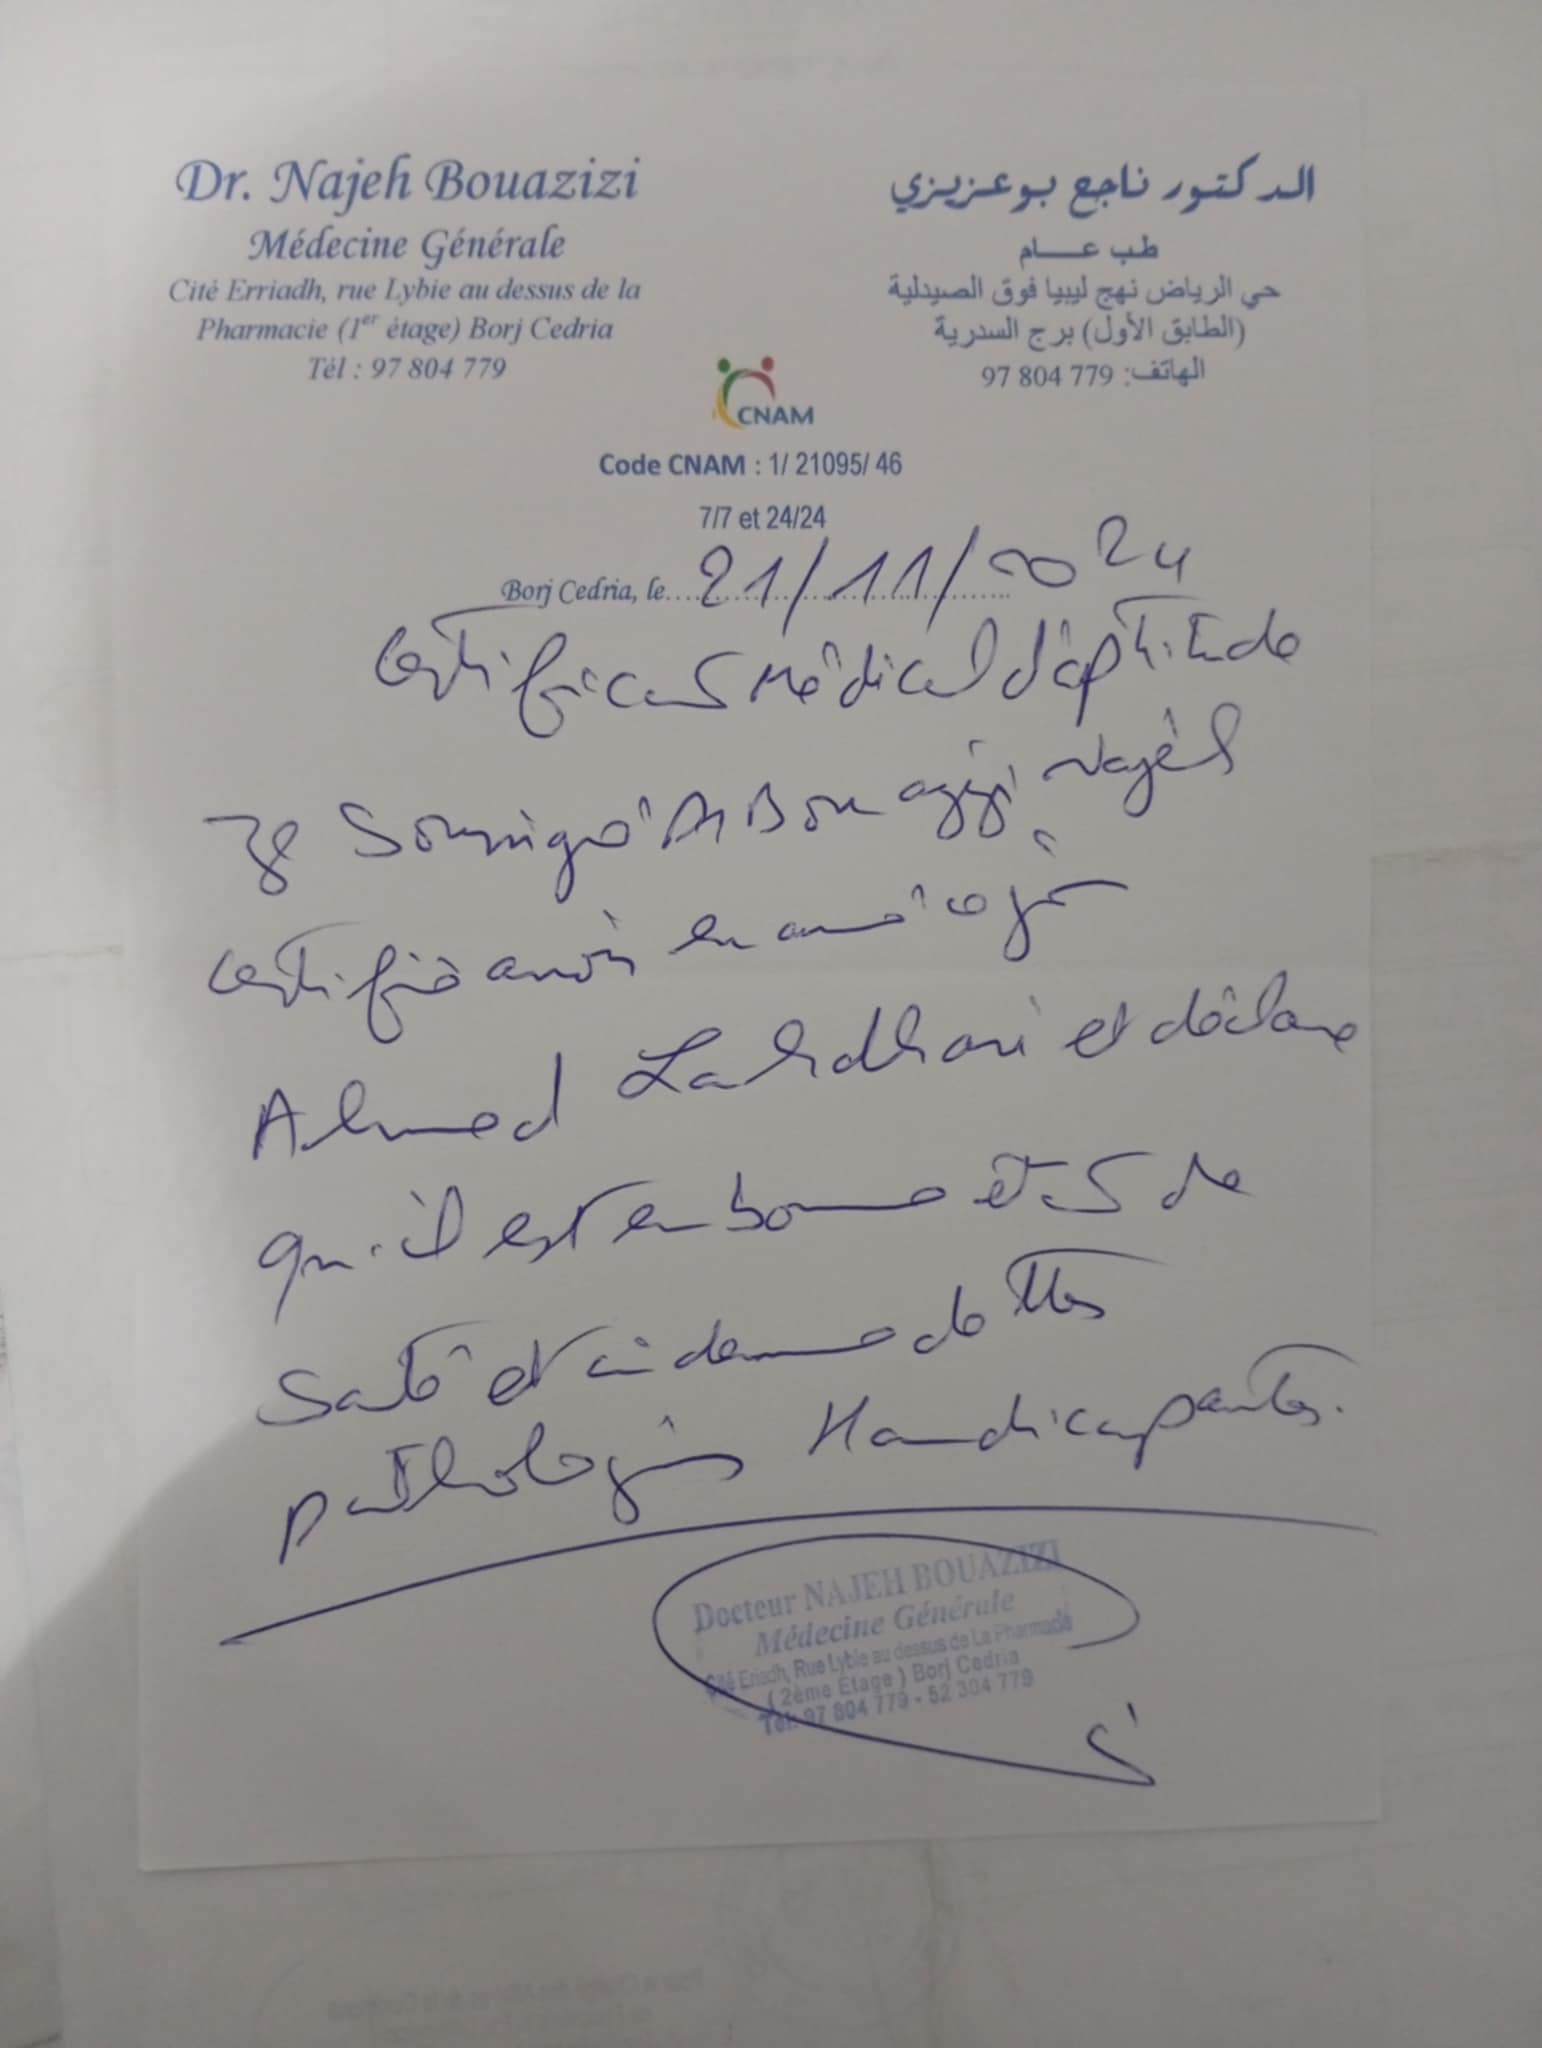 Dr. Najeh Bouazizi
Médecine Générale
Cité Erriadh, rue Lybie au dessus de la
Pharmacie (1er étage) Borj Cedria
Tél : 97 804 779
الدكتور ناجح بوعزيزي
طب عام
حي الرياض نهج ليبيا فوق الصيدلية
(الطابق الأول) برج السدرية
الهاتف: 779 804 97
CNAM
Code CNAM : 1/ 21095/ 46
7/7 et 24/24
Borj Cedria, le 21/11/2024
Certificat Médical d'aptitude
Je Soussigné Dr Bouazizi Najeh
certifie avoir examiné ce jour
Ahmed Lakhdhari et déclare
qu'il est en bonne état de
Santé et indemne de ttes
pathologies Handicapantes.
Docteur NAJEH BOUAZIZI
Médecine Générale
Cité Eriadh, Rue Lybie au dessus de La Pharmacie
( 2ème Etage ) Borj Cedria
Tél: 97 804 779 - 52 304 779